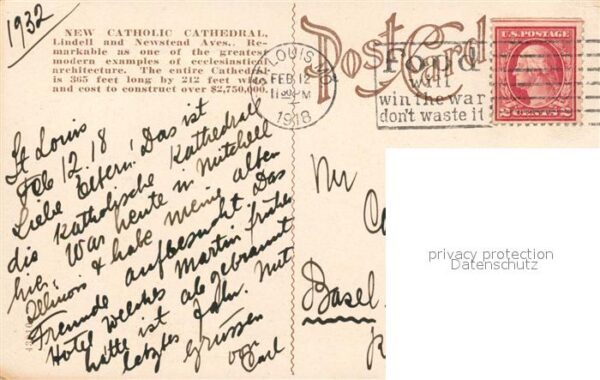 1932
NEW CATHOLIC CATHEDRAL,
Lindell and Newstead Aves., Re-
markable as one of the greatest
modern examples of ecclesiastical
architecture. The entire Cathedral
is 365 feet long by 212 feet wide
and cost to construct over $2,750,000.
Post Card
LOUIS
FEB 12
1918
Food
will
win the war
don't waste it
U.S. POSTAGE
2 CENTS 2
St Louis
Feb 12. 18
Liebe Eltern! Das ist
die Katholische Kathedrall
hier. War heute in Mitchell
Illinois & habe meine alten
Freunde aufgesucht. Das
Hotel welches Martin früher
hatte ist abgebrannt
letztes Jahr. Mit
Grüssen
von
Carl
Mr
Basel
privacy protection
Datenschutz